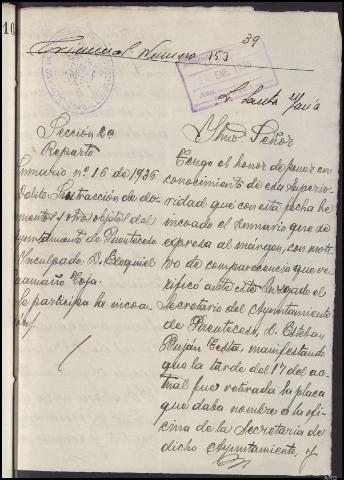 10
Criminal Número 153
39
ENE 1936
L. Santa María
Sección 2ª
Reparto
Sumario nº 16 de 1936
Delito: Sustracción de docu-
mentos y otros objetos del
Ayuntamiento de Puenteceso
Inculpado, D. Ezequiel
Caamaño Toja.
Se participa la incoa-
ción.
Ylmo. Señor
Tengo el honor de poner en
conocimiento de esa Superio-
ridad que con esta fecha he
incoado el sumario que se
expresa al márgen, con moti-
vo de comparecencia que ve-
rificó ante este Juzgado el
Secretario del Ayuntamiento
de Puenteceso, D. Esteban
Buján Testa, manifestando
que la tarde del 17 del ac-
tual fue retirada la placa
que daba nombre a la ofi-
cina de la Secretaría de
dicho Ayuntamiento, y